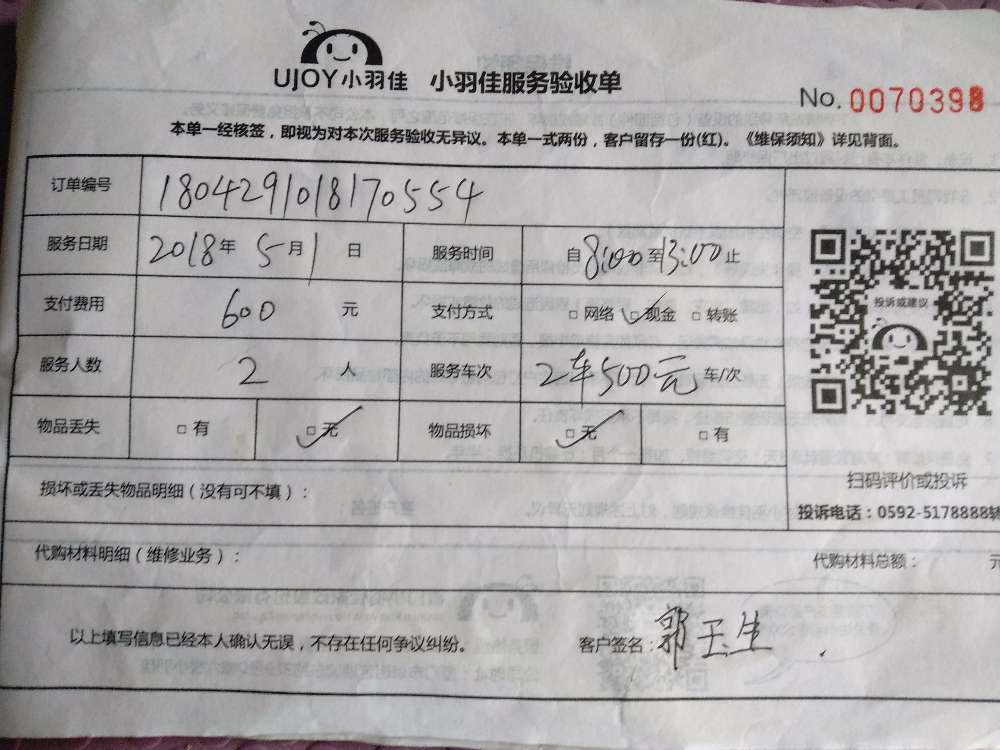 UJOY小羽佳 小羽佳服务验收单
No. 0070398
本单一经核签，即视为对本次服务验收无异议。本单一式两份，客户留存一份(红)。《维保须知》详见背面。
订单编号 1804291018170554
服务日期 2018年5月1日 服务时间 自8:00至13:00止
支付费用 600 元 支付方式 □网络 ☑现金 □转账
服务人数 2 人 服务车次 2车500元 车/次
物品丢失 □有 ☑无 物品损坏 ☑无 □有
投诉或建议
扫码评价或投诉
投诉电话：0592-5178888转
损坏或丢失物品明细（没有可不填）：
代购材料明细（维修业务）： 代购材料总额： 元
以上填写信息已经本人确认无误，不存在任何争议纠纷。 客户签名：郭玉生